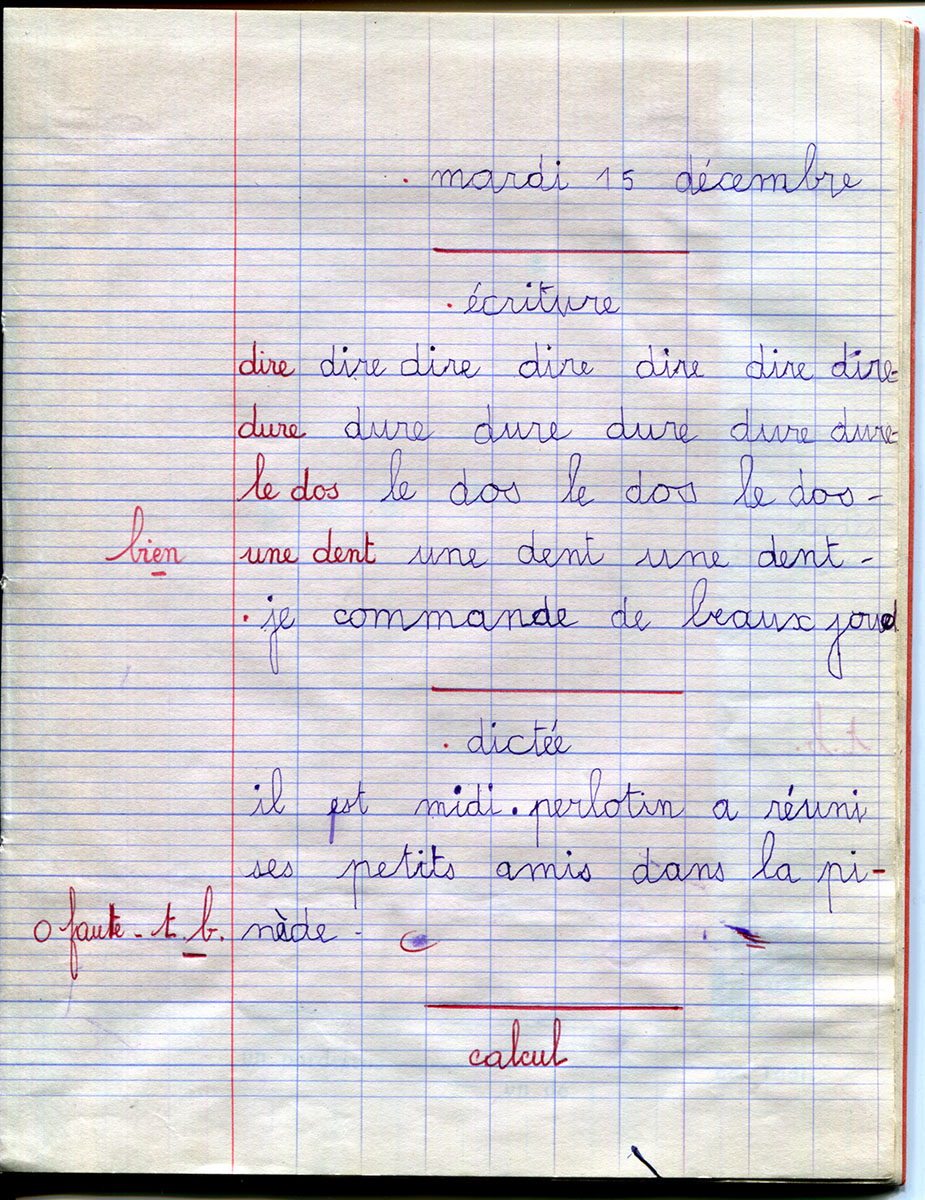 mardi 15 décembre
écriture
dire dire dire dire dire dire dire
dure dure dure dure dure dure
le dos le dos le dos le dos -
bien une dent une dent une dent -
je commande de beaux
dictée
il est midi. perlotin a réuni
ses petits amis dans la pi-
0 faute - t. b. nède -
calcul